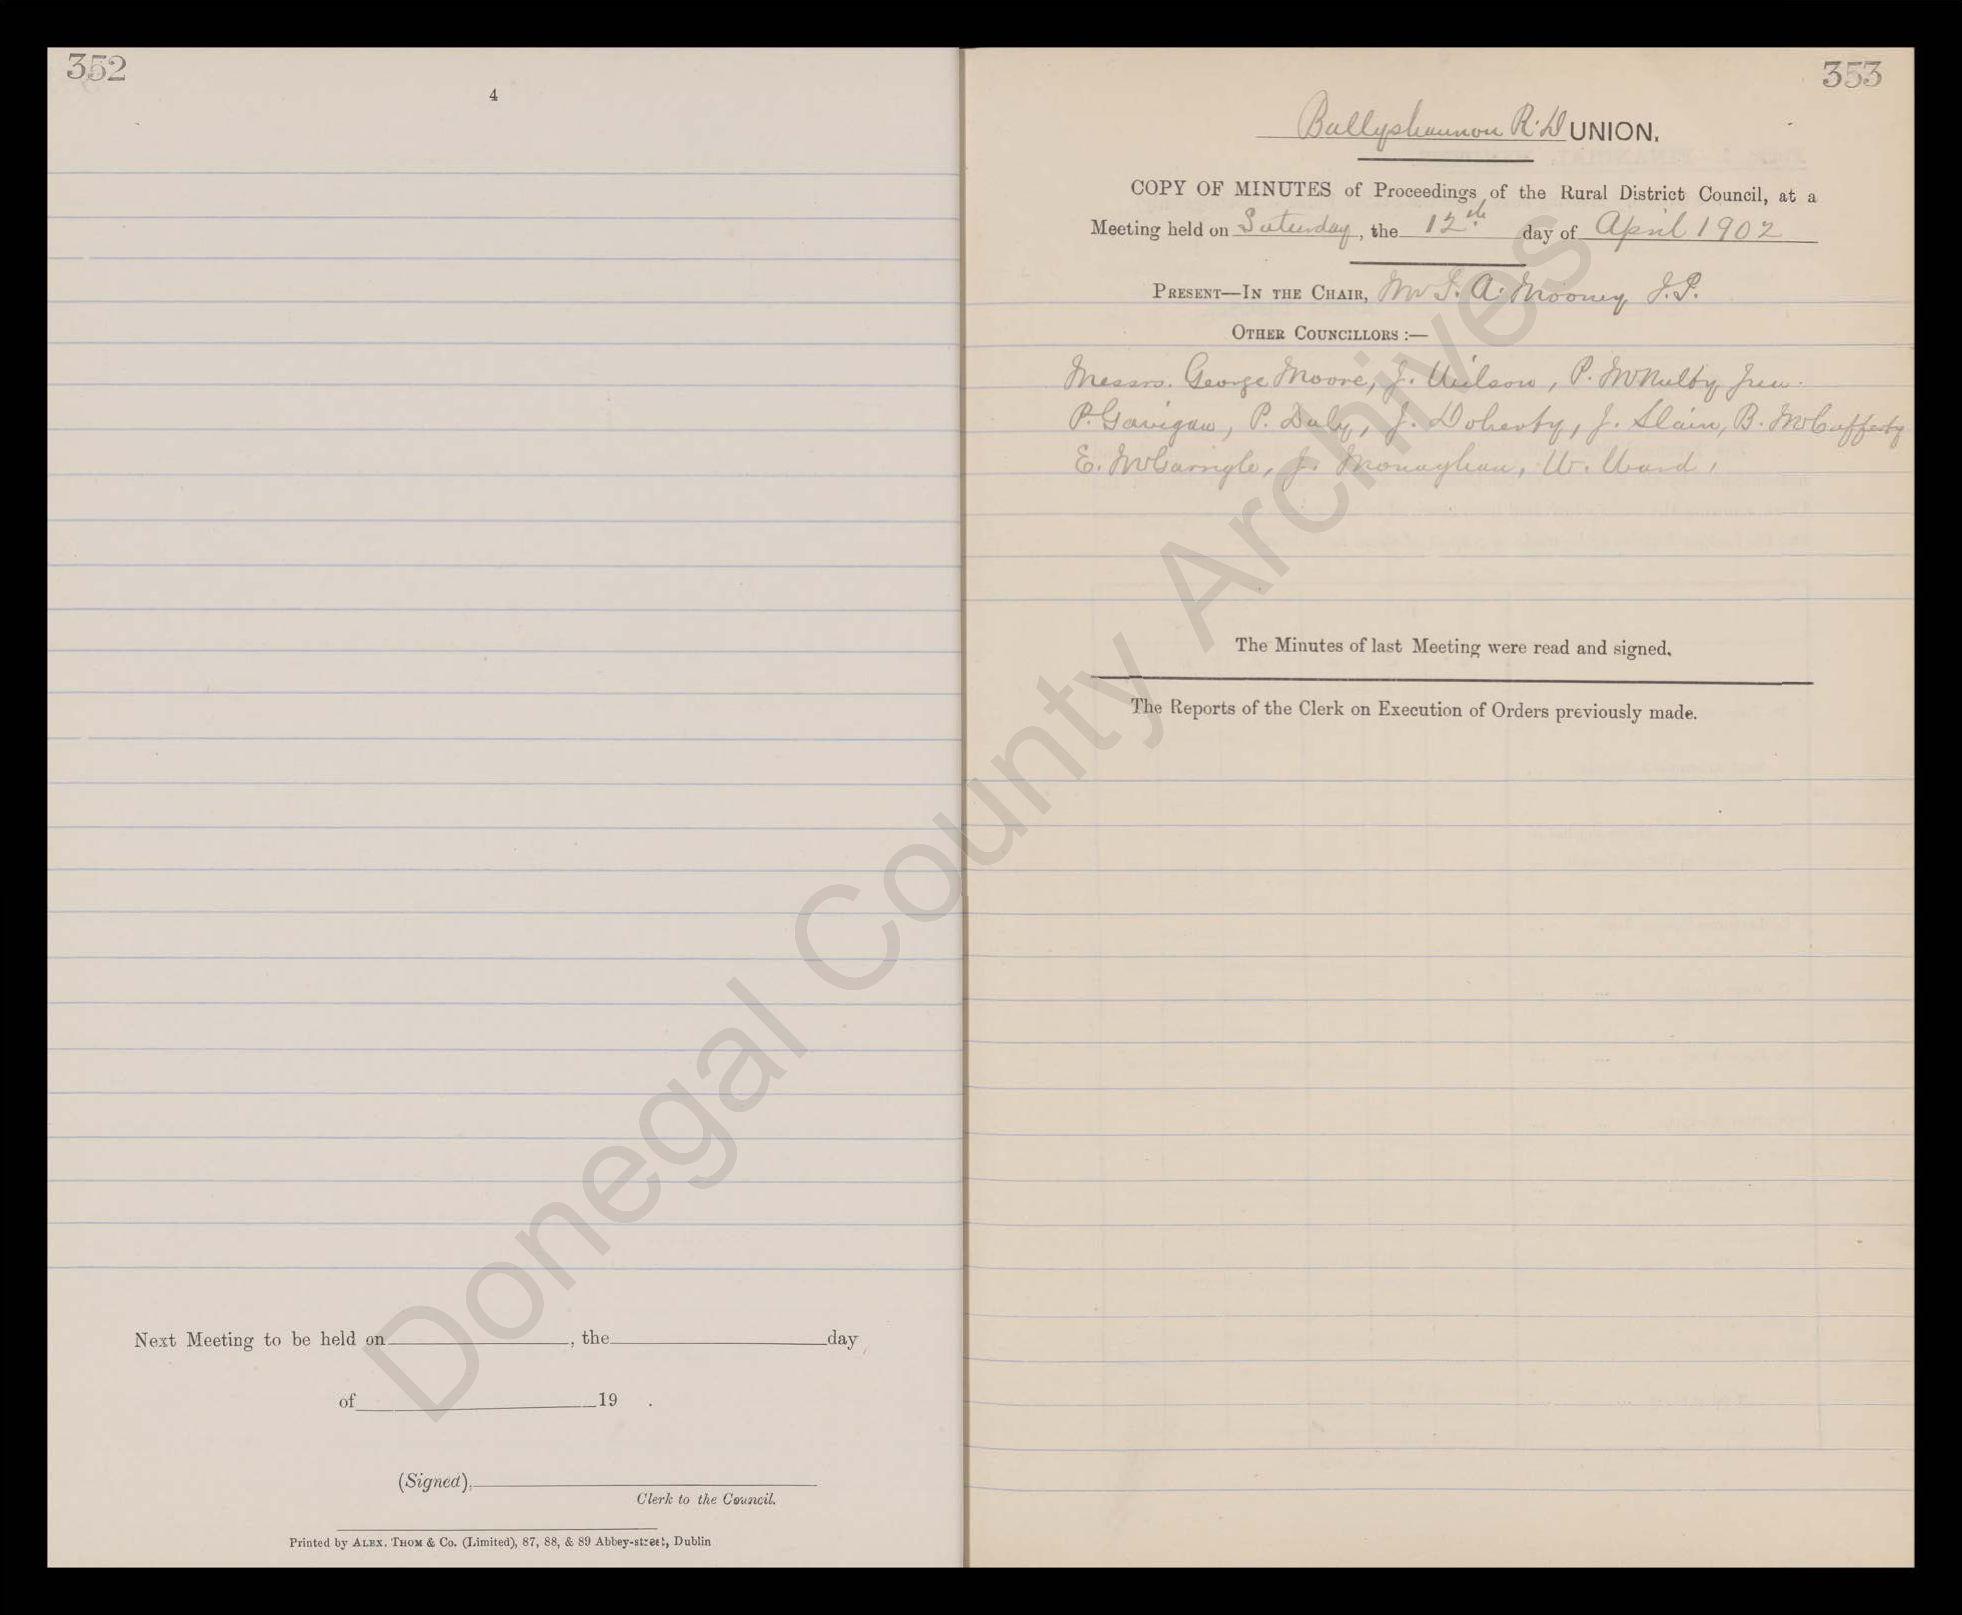 352
4
Next Meeting to be held on , the day
of 19 .
(Signed),
Clerk to the Council.
Printed by ALEX. THOM & Co. (Limited), 87, 88, & 89 Abbey-street, Dublin
353
Ballyshannon R.D UNION.
COPY OF MINUTES of Proceedings of the Rural District Council, at a
Meeting held on Saturday, the 12th day of April 1902
PRESENT—IN THE CHAIR, Mr A. Mooney J.P.
OTHER COUNCILLORS :—
Messrs. George Moore, J. Wilson, P. McNulty Jun.
P. Gavigan, P. Daly, J. Doherty, J. Slain, B. McCafferty
E. McGarrigle, J. Monaghan, W. Ward,
The Minutes of last Meeting were read and signed.
The Reports of the Clerk on Execution of Orders previously made.
Donegal County Archives